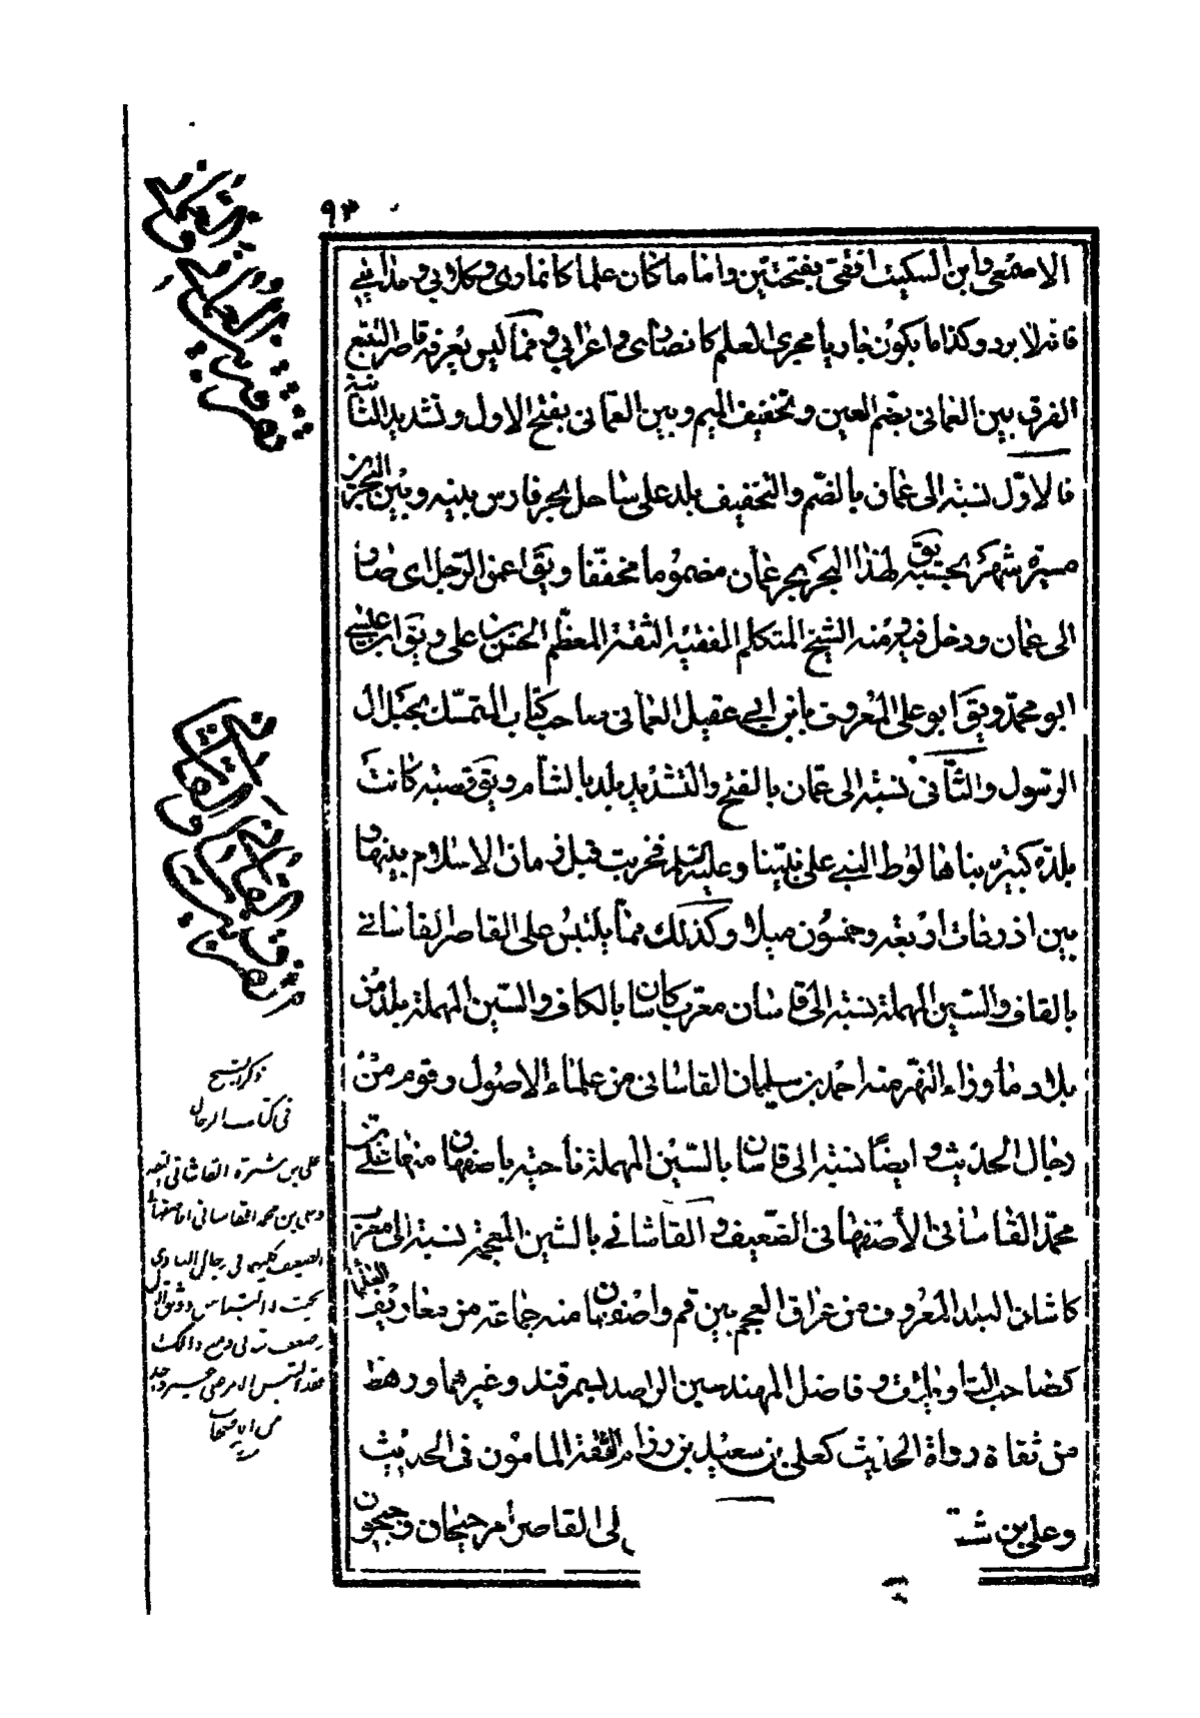 ٩٣
الاصمعى وابن السكيت افقى بفتحتين واما ما كان علما كانمارى وكلابى ومداينى
فانه لا يرد وكذا ما يكون جاريا مجرى العلم كانصارى واعرابى ومما ليس يعرفه قاصر التتبع
الفرق بين العمانى بضم العين وتخفيف الميم وبين العمانى بفتح الاول وتشديد الثانية
فالاول نسبة الى عمان بالضم والتخفيف بلد على ساحل بحر فارس بينه وبين البحرين
مسيرة شهر بحسبه يق لهذا البحر بحر عمان مضموما مخففا ويق اعمن الرجل اى صار
الى عمان ودخل فيه ومنه الشيخ المتكلم الفقيه الثقة المعظم الحسن بن على ويق ابن عيسى
ابو محمد ويق ابو على المعروف بابن ابى عقيل العمانى صاحب كتاب المتمسك بحبل ال
الرسول والثانى نسبة الى عمان بالفتح والتشديد بلد بالشام ويق قصبة كانت
بلدة كبيرة بناها لوط النبى على نبينا وعليه السلم فخربت قبل زمان الاسلام بينها و
بين اذرعات اربعة وخمسون ميلا وكذلك مما يلتبس على القاصر القاسانى
بالقاف والسين المهملة نسبة الى قاسان معرب كاسان بالكاف والسين المهملة بلد من
بلاد ماوراء النهر منه احمد بن سليمان القاسانى من علماء الاصول وقوم من
رجال الحديث وايضا نسبة الى قاسان بالسين المهملة ناحية باصفهان منها على بن
محمد القاسانى الأصفهانى الضعيف والقاشانى بالشين المعجمة نسبة الى معرب
كاشان البلد المعروف من عراق العجم بين قم واصفهان منه جماعة من معاريف العلماء
كصاحب التاويلات وفاضل المهندسين الراصد بسمرقند وغيرهما ورهط
من ثقاة رواة الحديث كعلى بن سعيد بن رزام الثقة المامون فى الحديث
وعلى بن شـ لى القاصر أمر جيحان وجيحون
الفرق بين العمانى والعمانى
الفرق بين القاسانى والقاشانى
ذكر الشيخ
فى كتاب الرجال
على بن شيرة القاشانى ثقة
وعلى بن محمد القاسانى
الضعيف كليهما فى رجال الهادى